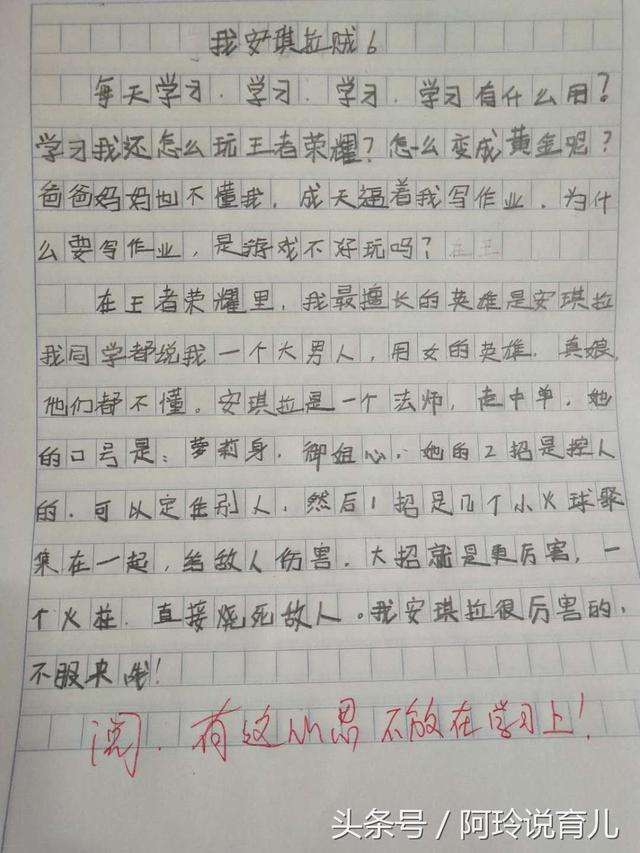 我安琪拉贼6
每天学习.学习.学习.学习有什么用?
学习我还怎么玩王者荣耀?怎么变成黄金呢?
爸爸妈妈也不懂我,成天逼着我写作业.为什
么要写作业,是游戏不好玩吗?在王
在王者荣耀里,我最擅长的英雄是安琪拉
我同学都说我一个大男人,用女的英雄.真娘,
他们都不懂。安琪拉是一个法师,走中单.她
的口号是:萝莉身.御姐心.她的2招是控人
的.可以定住别人.然后1招是几个小火球聚
集在一起,给敌人伤害.大招就是更厉害,一
个火柱.直接烧死敌人。我安琪拉很厉害的,
不服来战!
阅.有这心思不放在学习上!
头条号/阿玲说育儿